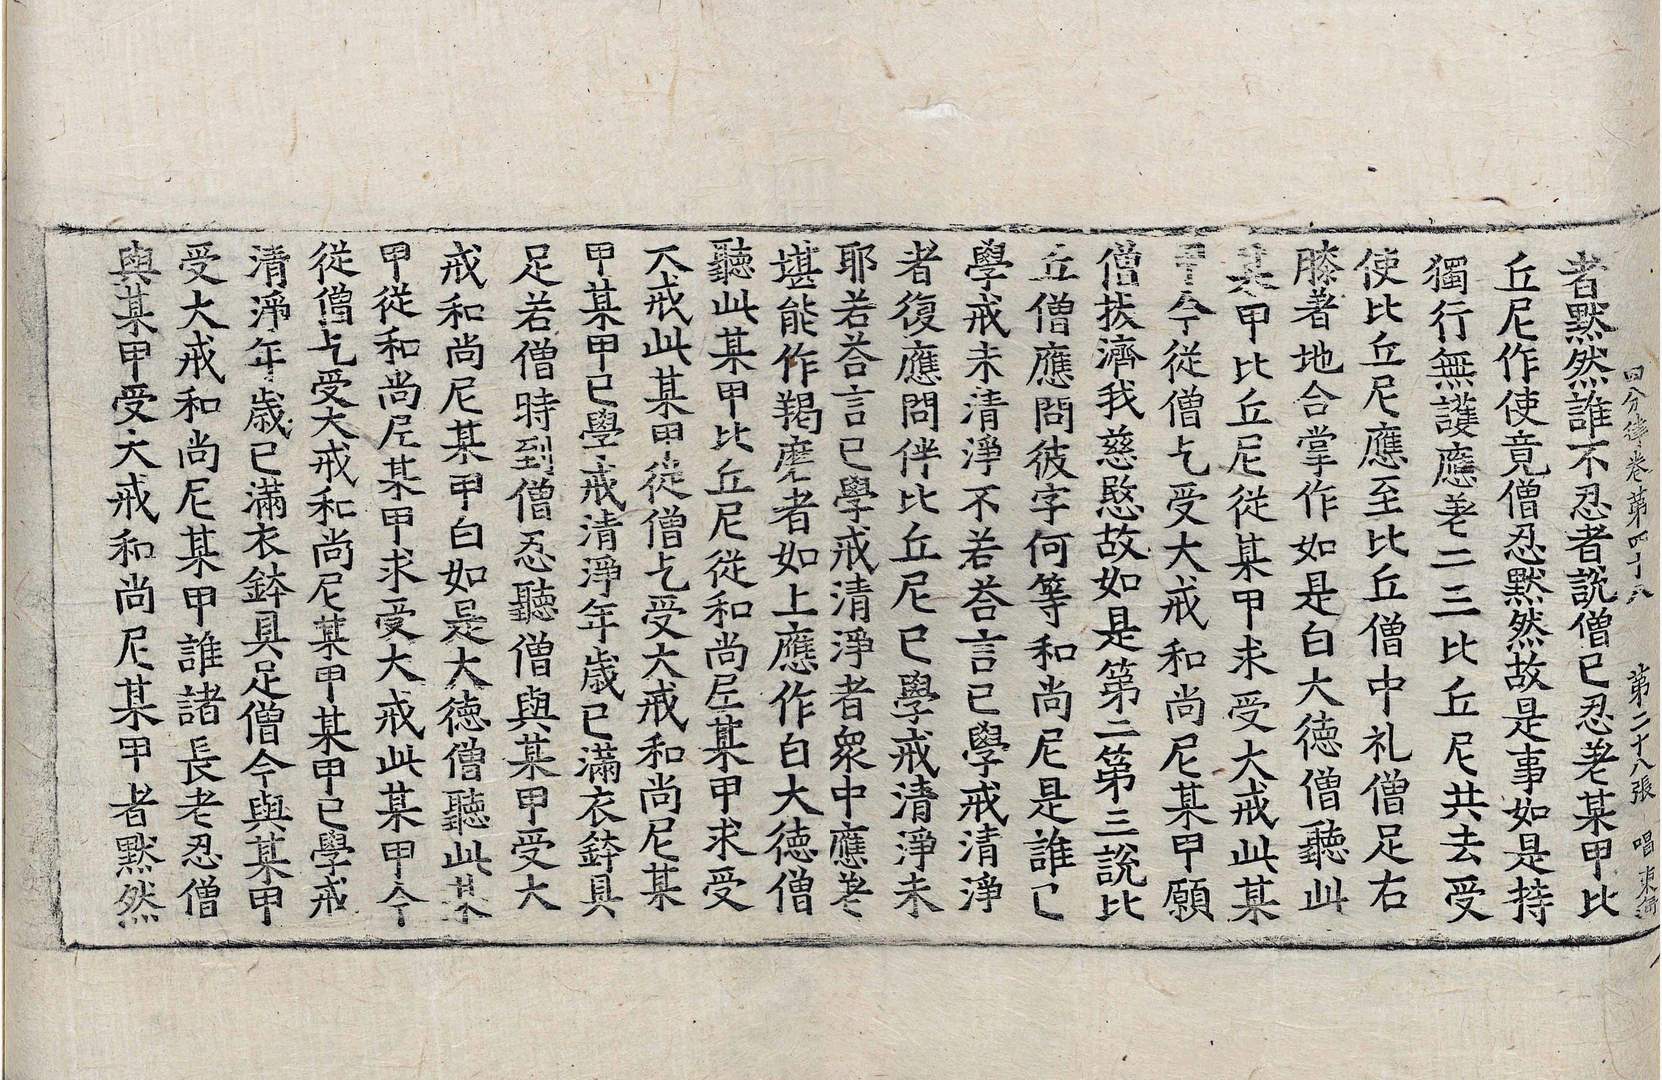 四分律卷第四十八 第二十八張 唱
者黙然誰不忍者說僧已忍差某甲比
丘尼作使竟僧忍黙然故是事如是持
獨行無護應差二三比丘尼共去受
使比丘尼應至比丘僧中礼僧足右
膝著地合掌作如是白大德僧聽此
某甲比丘尼從某甲求受大戒此某
甲今從僧乞受大戒和尚尼某甲願
僧拔濟我慈愍故如是第二第三說比
丘僧應問彼字何等和尚尼是誰已
學戒未清淨不若荅言已學戒清淨
者復應問伴比丘尼已學戒清淨未
耶若荅言已學戒清淨者衆中應差
堪能作羯磨者如上應作白大德僧
聽此某甲比丘尼從和尚尼某甲求受
大戒此某甲從僧乞受大戒和尚尼某
甲某甲已學戒清淨年歲已滿衣鉢具
足若僧時到僧忍聽僧與某甲受大
戒和尚尼某甲白如是大德僧聽此某
甲從和尚尼某甲求受大戒此某甲今
從僧乞受大戒和尚尼某甲某甲已學戒
清淨年歲已滿衣鉢具足僧今與某甲
受大戒和尚尼某甲誰諸長老忍僧
與某甲受大戒和尚尼某甲者黙然